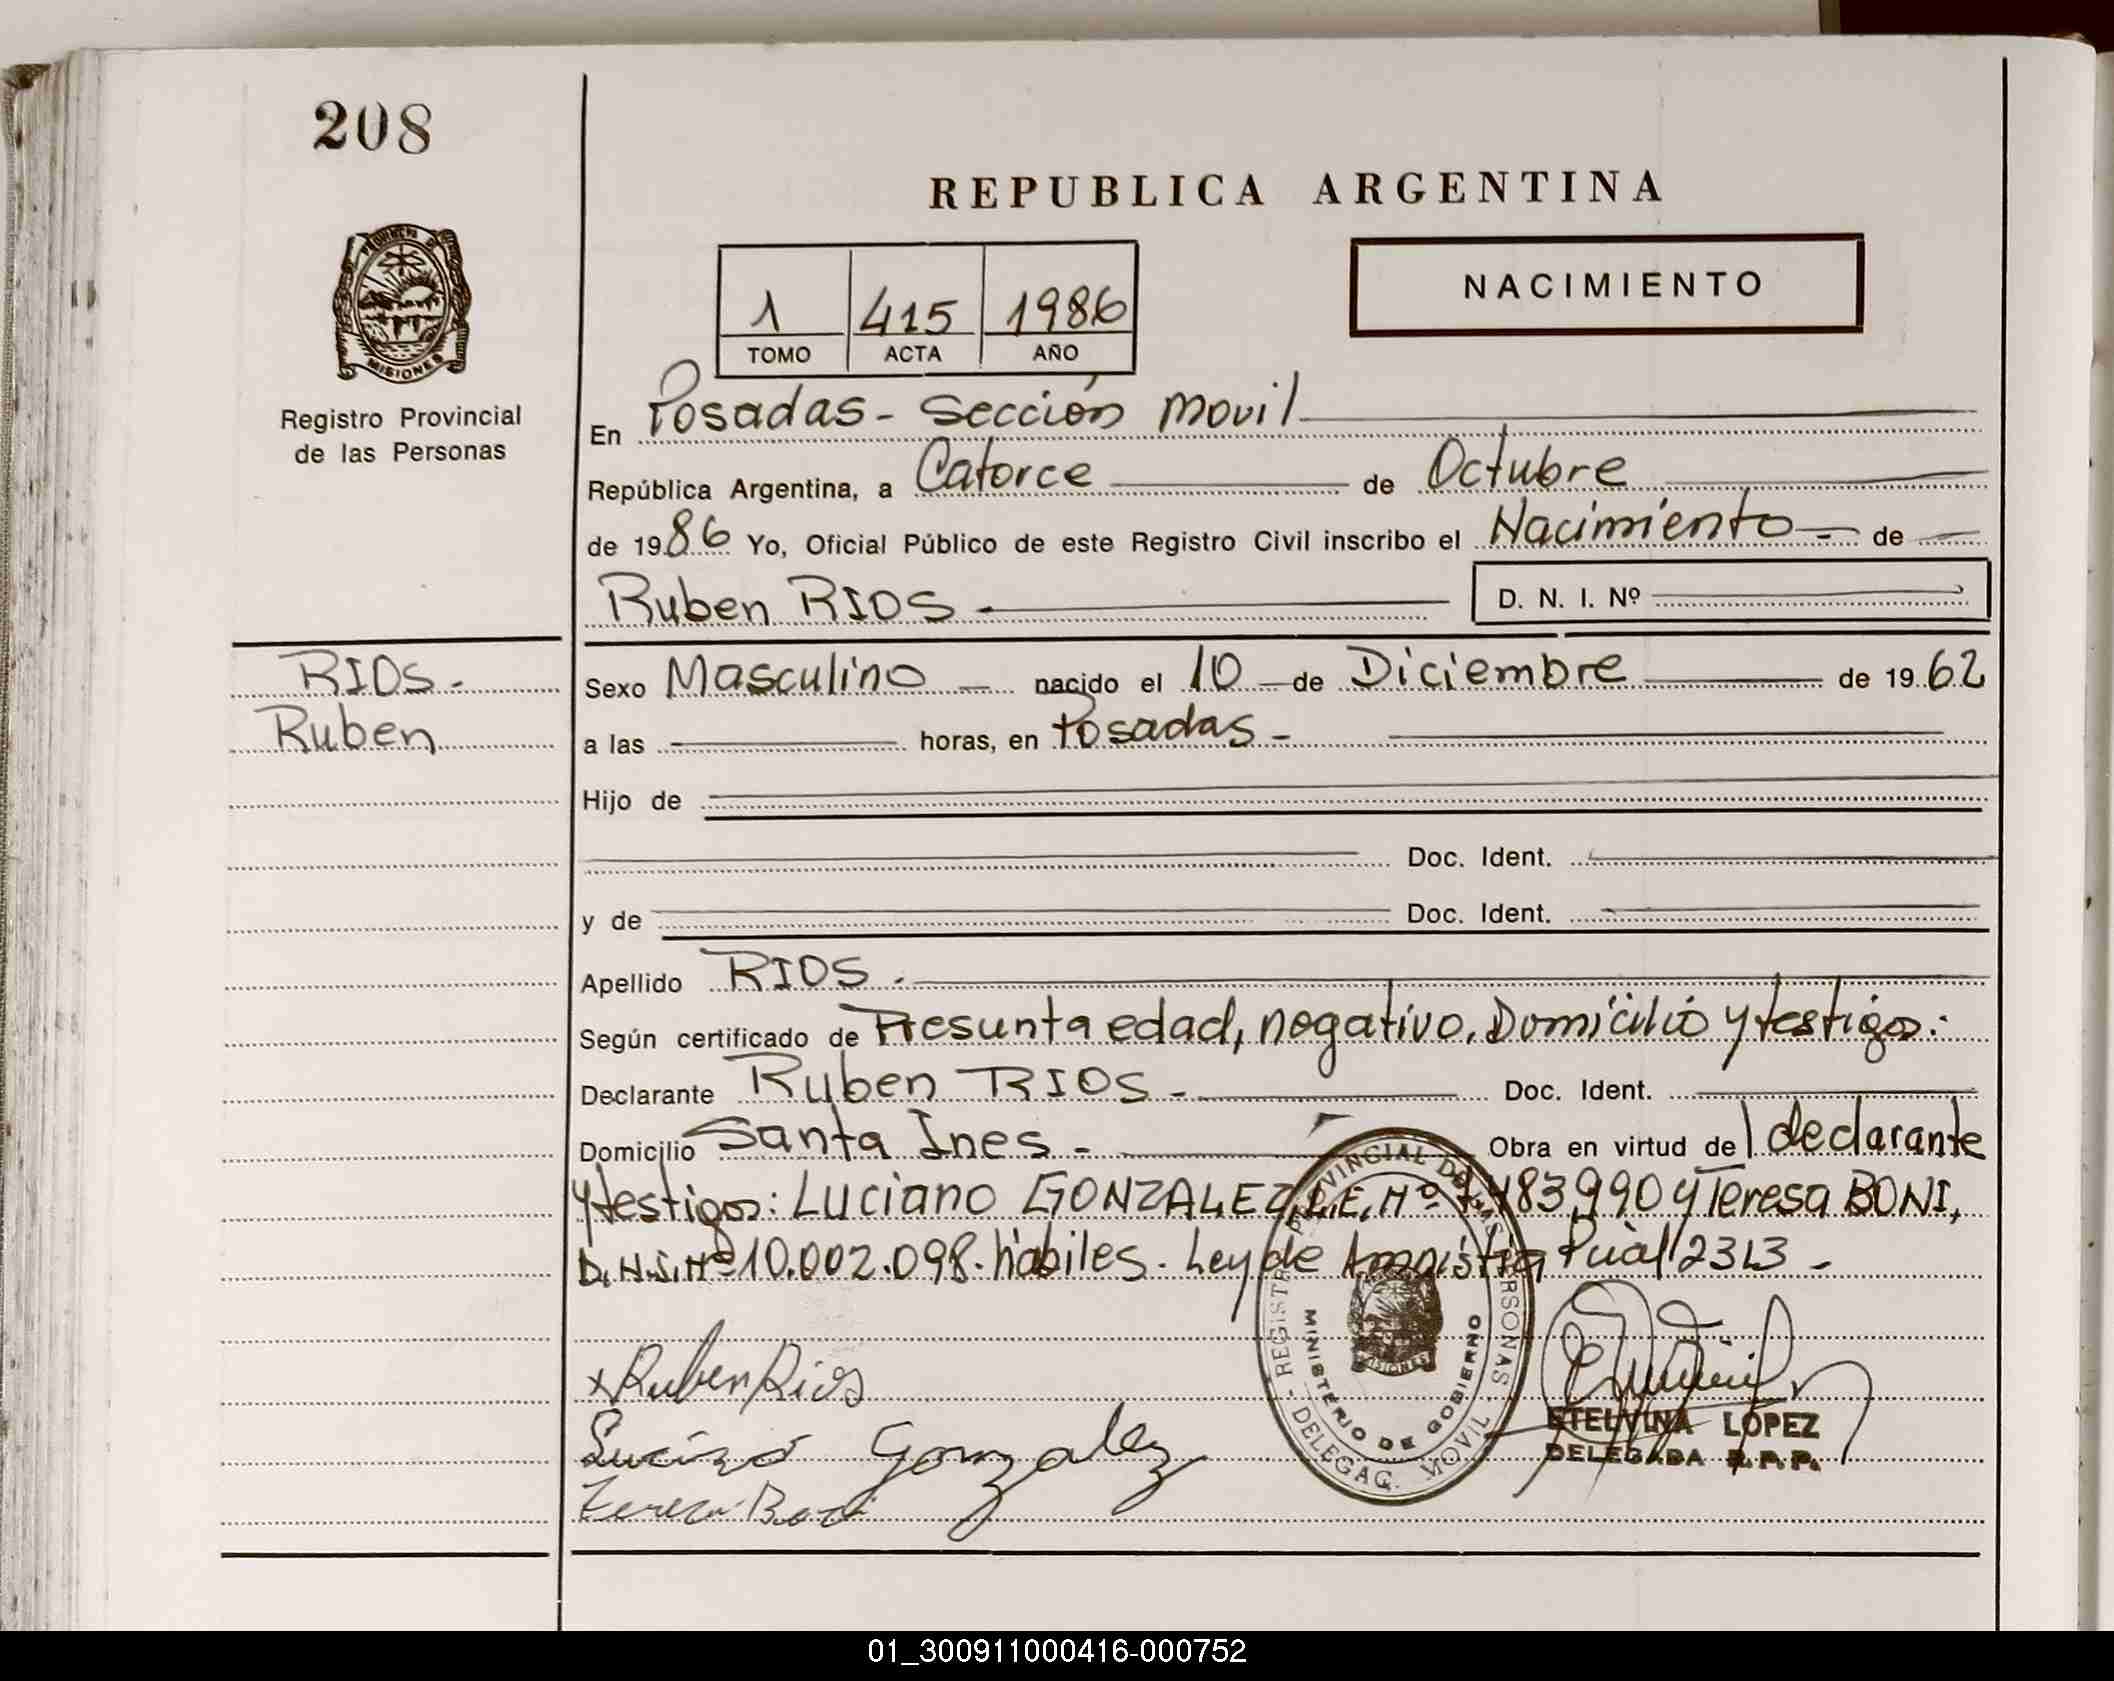 208
PROVINCIA DE
MISIONES
Registro Provincial
de las Personas
REPUBLICA ARGENTINA
1 415 1986
TOMO ACTA AÑO
NACIMIENTO
En Posadas - Sección Movil
República Argentina, a Catorce de Octubre
de 1986 Yo, Oficial Público de este Registro Civil inscribo el Nacimiento de
Ruben RIOS
D. N. I. Nº
RIOS.
Ruben
Sexo Masculino nacido el 10 de Diciembre de 1962
a las horas, en Posadas
Hijo de
Doc. Ident.
y de Doc. Ident.
Apellido RIOS.
Según certificado de Presunta edad, negativo, Domicilio y testigos:
Declarante Ruben RIOS - Doc. Ident.
Domicilio Santa Ines - Obra en virtud de l declarante
y testigos: Luciano GONZALEZ, L.E. Nº 483.990 y Teresa BONI,
D.N.I. Nº 10.002.098. hábiles. Ley de Amnistia Pcial 2313 -
x Ruben Rios
Luciano Gonzalez
Teresa Boni
REGISTRO PROVINCIAL DE LAS PERSONAS
MINISTERIO DE GOBIERNO
MISIONES
DELEGAC. MOVIL
ETELVINA LOPEZ
DELEGADA R.P.P.
01_300911000416-000752